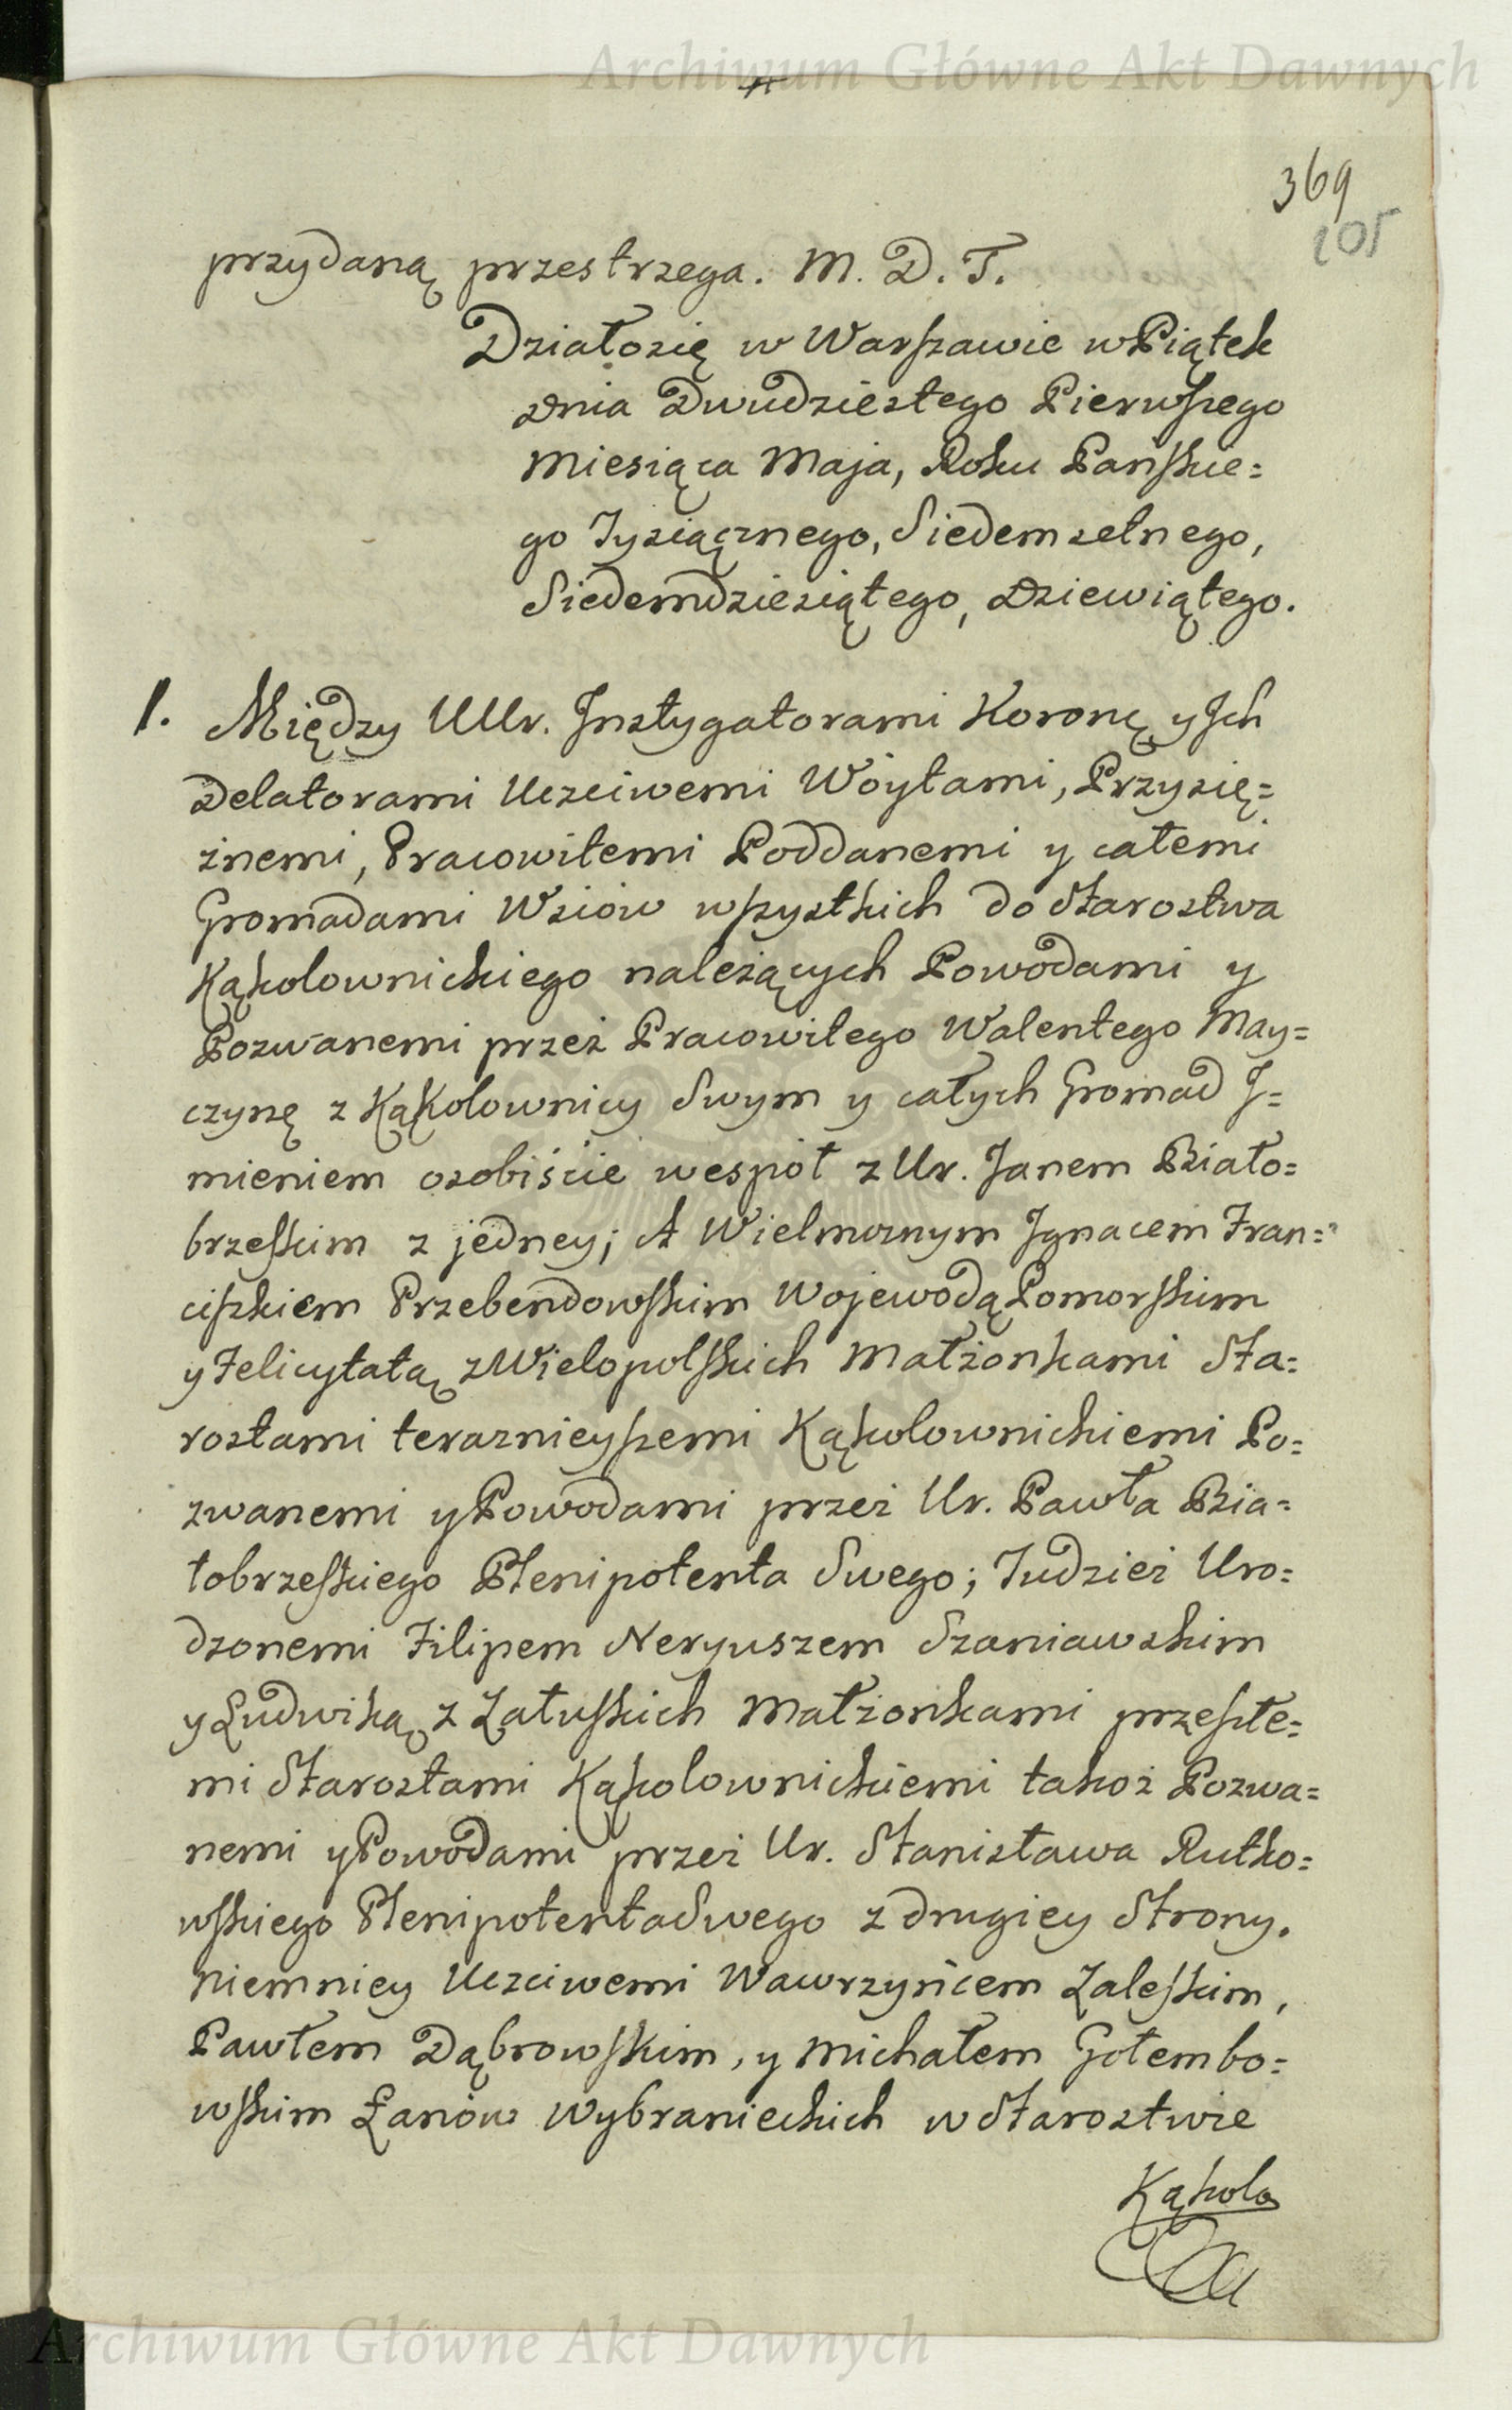 Archiwum Główne Akt Dawnych
369
205
przydaną przestrzega. M. D. T.
Działosię w Warszawie w Piątek
Dnia Dwudziestego Pierwszego
Miesiąca Maja, Roku Pańskie=
go Tysiącznego, Siedemsetnego,
Siedemdziesiątego, Dziewiątego.
1. Między UUr. Instygatorami Koronę y Ich
Delatorami Uczciwemi Woytami, Przysię=
żnemi, Pracowitemi Poddanemi y całemi
Gromadami Wsiow wszystkich do Starostwa
Kąkolownickiego należących Powodami y
Pozwanemi przez Pracowitego Walentego May=
czynę z Kąkolownicy Swym y całych Gromad I=
mieniem osobiście wespoł z Ur. Janem Biało=
brzeskim z jedney; A Wielmożnym Ignacem Fran=
ciszkiem Przebendowskim Wojewodą Pomorskim
y Felicytatą z Wielopolskich Małżonkami Sta=
rostami teraznieyszemi Kąkolownickiemi Po=
zwanemi y Powodami przez Ur. Pawła Bia=
łobrzeskiego Plenipotenta Swego; Tudzież Uro=
dzonemi Filipem Neryuszem Szaniawskim
y Ludwiką z Załuskich Małżonkami przeszłe=
mi Starostami Kąkolownickiemi takoż Pozwa=
nemi y Powodami przez Ur. Stanisława Rutko=
wskiego Plenipotenta Swego z drugiey Strony.
Niemniey Uczciwemi Wawrzyńcem Zaleskim,
Pawłem Dąbrowskim, y Michałem Gołembo=
wskim Łanow Wybranieckich w Starostwie
Kąkolo
Archiwum Główne Akt Dawnych